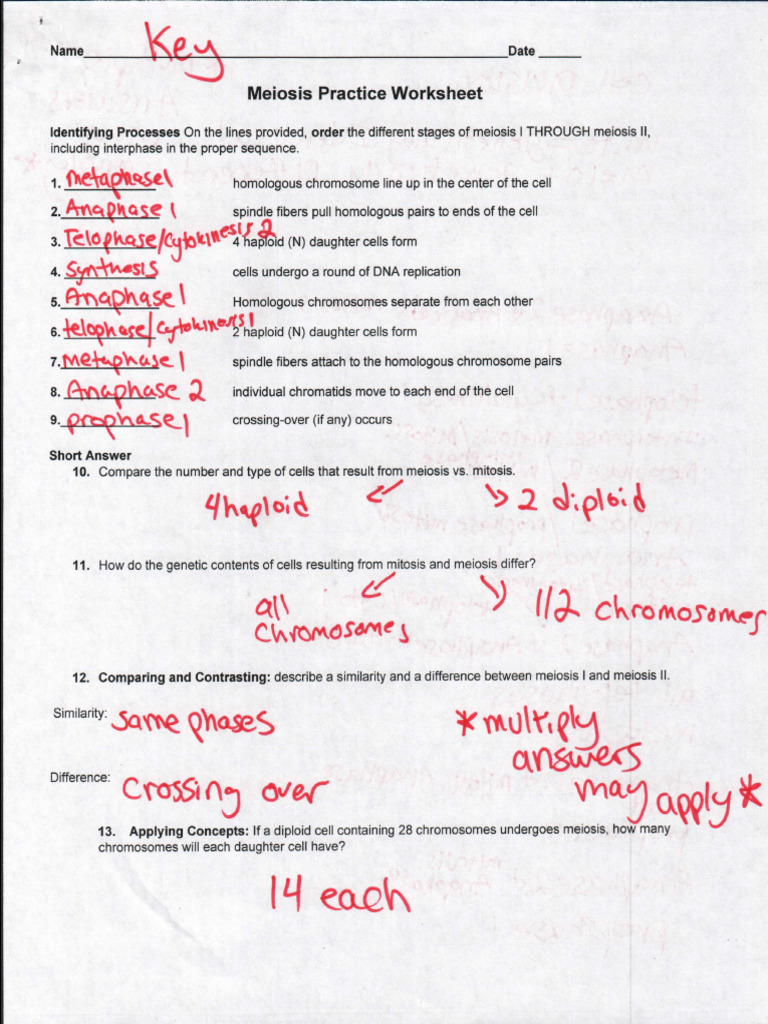 Name Key Date
Meiosis Practice Worksheet
Identifying Processes On the lines provided, order the different stages of meiosis I THROUGH meiosis II,
including interphase in the proper sequence.
1. metaphase1 homologous chromosome line up in the center of the cell
2. Anaphase 1 spindle fibers pull homologous pairs to ends of the cell
3. Telophase/cytokinesis 2 4 haploid (N) daughter cells form
4. Synthesis cells undergo a round of DNA replication
5. Anaphase 1 Homologous chromosomes separate from each other
6. telophase/cytokinesis 1 2 haploid (N) daughter cells form
7. metaphase 1 spindle fibers attach to the homologous chromosome pairs
8. Anaphase 2 individual chromatids move to each end of the cell
9. prophase 1 crossing-over (if any) occurs
Short Answer
10. Compare the number and type of cells that result from meiosis vs. mitosis.
4 haploid 2 diploid
11. How do the genetic contents of cells resulting from mitosis and meiosis differ?
all 1/2 chromosomes
chromosomes
12. Comparing and Contrasting: describe a similarity and a difference between meiosis I and meiosis II.
Similarity: same phases *multiply
answers
Difference: crossing over may apply*
13. Applying Concepts: If a diploid cell containing 28 chromosomes undergoes meiosis, how many
chromosomes will each daughter cell have?
14 each